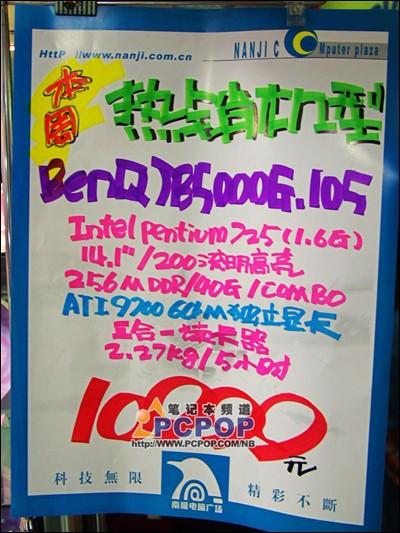 HttP://www.nanji.com.cn
NANJI C Mputer plaza
本周
热点销机型
BenQ JB5000G.105
Intel pentium 725(1.6G)
14.1"/200流明高亮
256M DDR/40G/COMBO
ATI 9700 64M独立显卡
五合一读卡器
2.27kg/5小时
10000元
笔记本频道
PCPOP
http://www.PCPOP.COM/NB
科技無限
南极电脑广场
精彩不斷